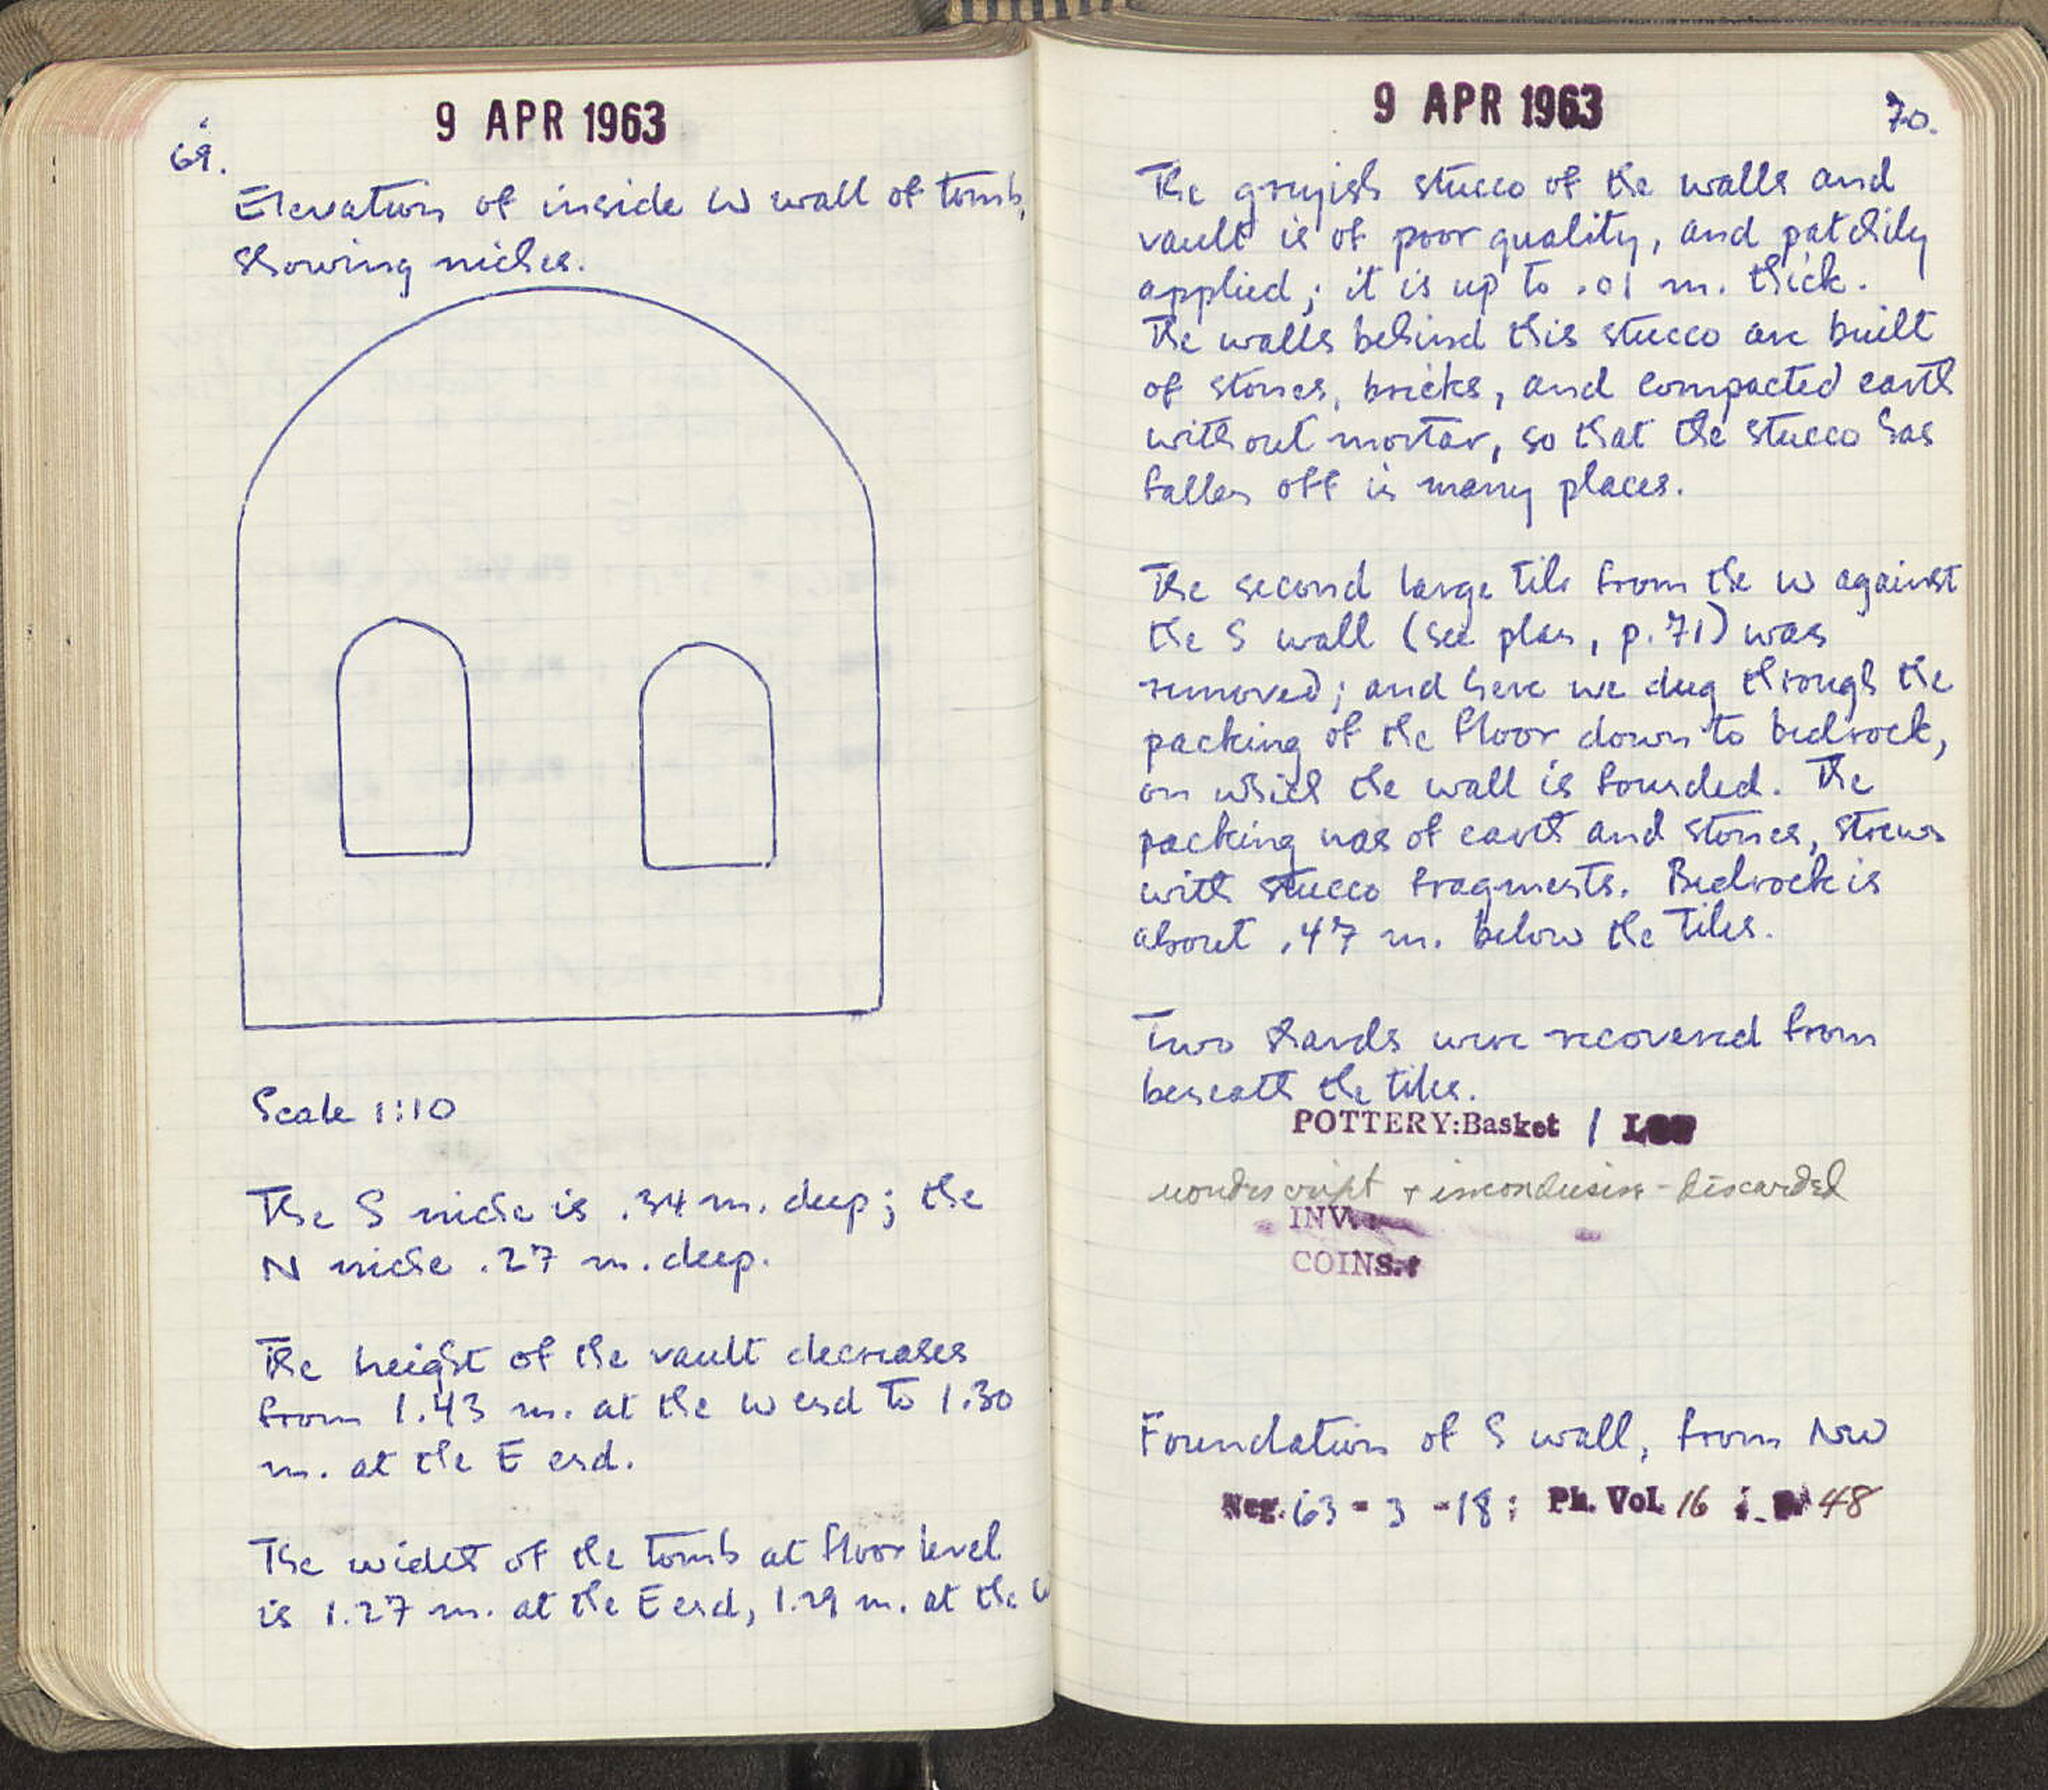 9 APR 1963
69.
Elevation of inside W wall of tomb,
showing niches.
Scale 1:10
The S niche is .34 m. deep; the
N niche .27 m. deep.
The height of the vault decreases
from 1.43 m. at the W end to 1.30
m. at the E end.
The width of the tomb at floor level
is 1.27 m. at the E end, 1.29 m. at the W
9 APR 1963
70.
The greyish stucco of the walls and
vault is of poor quality, and patchily
applied; it is up to .01 m. thick.
The walls behind this stucco are built
of stones, bricks, and compacted earth
without mortar, so that the stucco has
fallen off in many places.
The second large tile from the W against
the S wall (see plan, p. 71) was
removed; and here we dug through the
packing of the floor down to bedrock,
on which the wall is founded. The
packing was of earth and stones, strewn
with stucco fragments. Bedrock is
about .47 m. below the tiles.
Two sherds were recovered from
beneath the tiles.
POTTERY:Basket 1
nondescript + inconclusive - discarded
INV.
COINS:
Foundation of S wall, from NW
Neg. 63 - 3 - 18; Ph. Vol. 16 ; p. 48